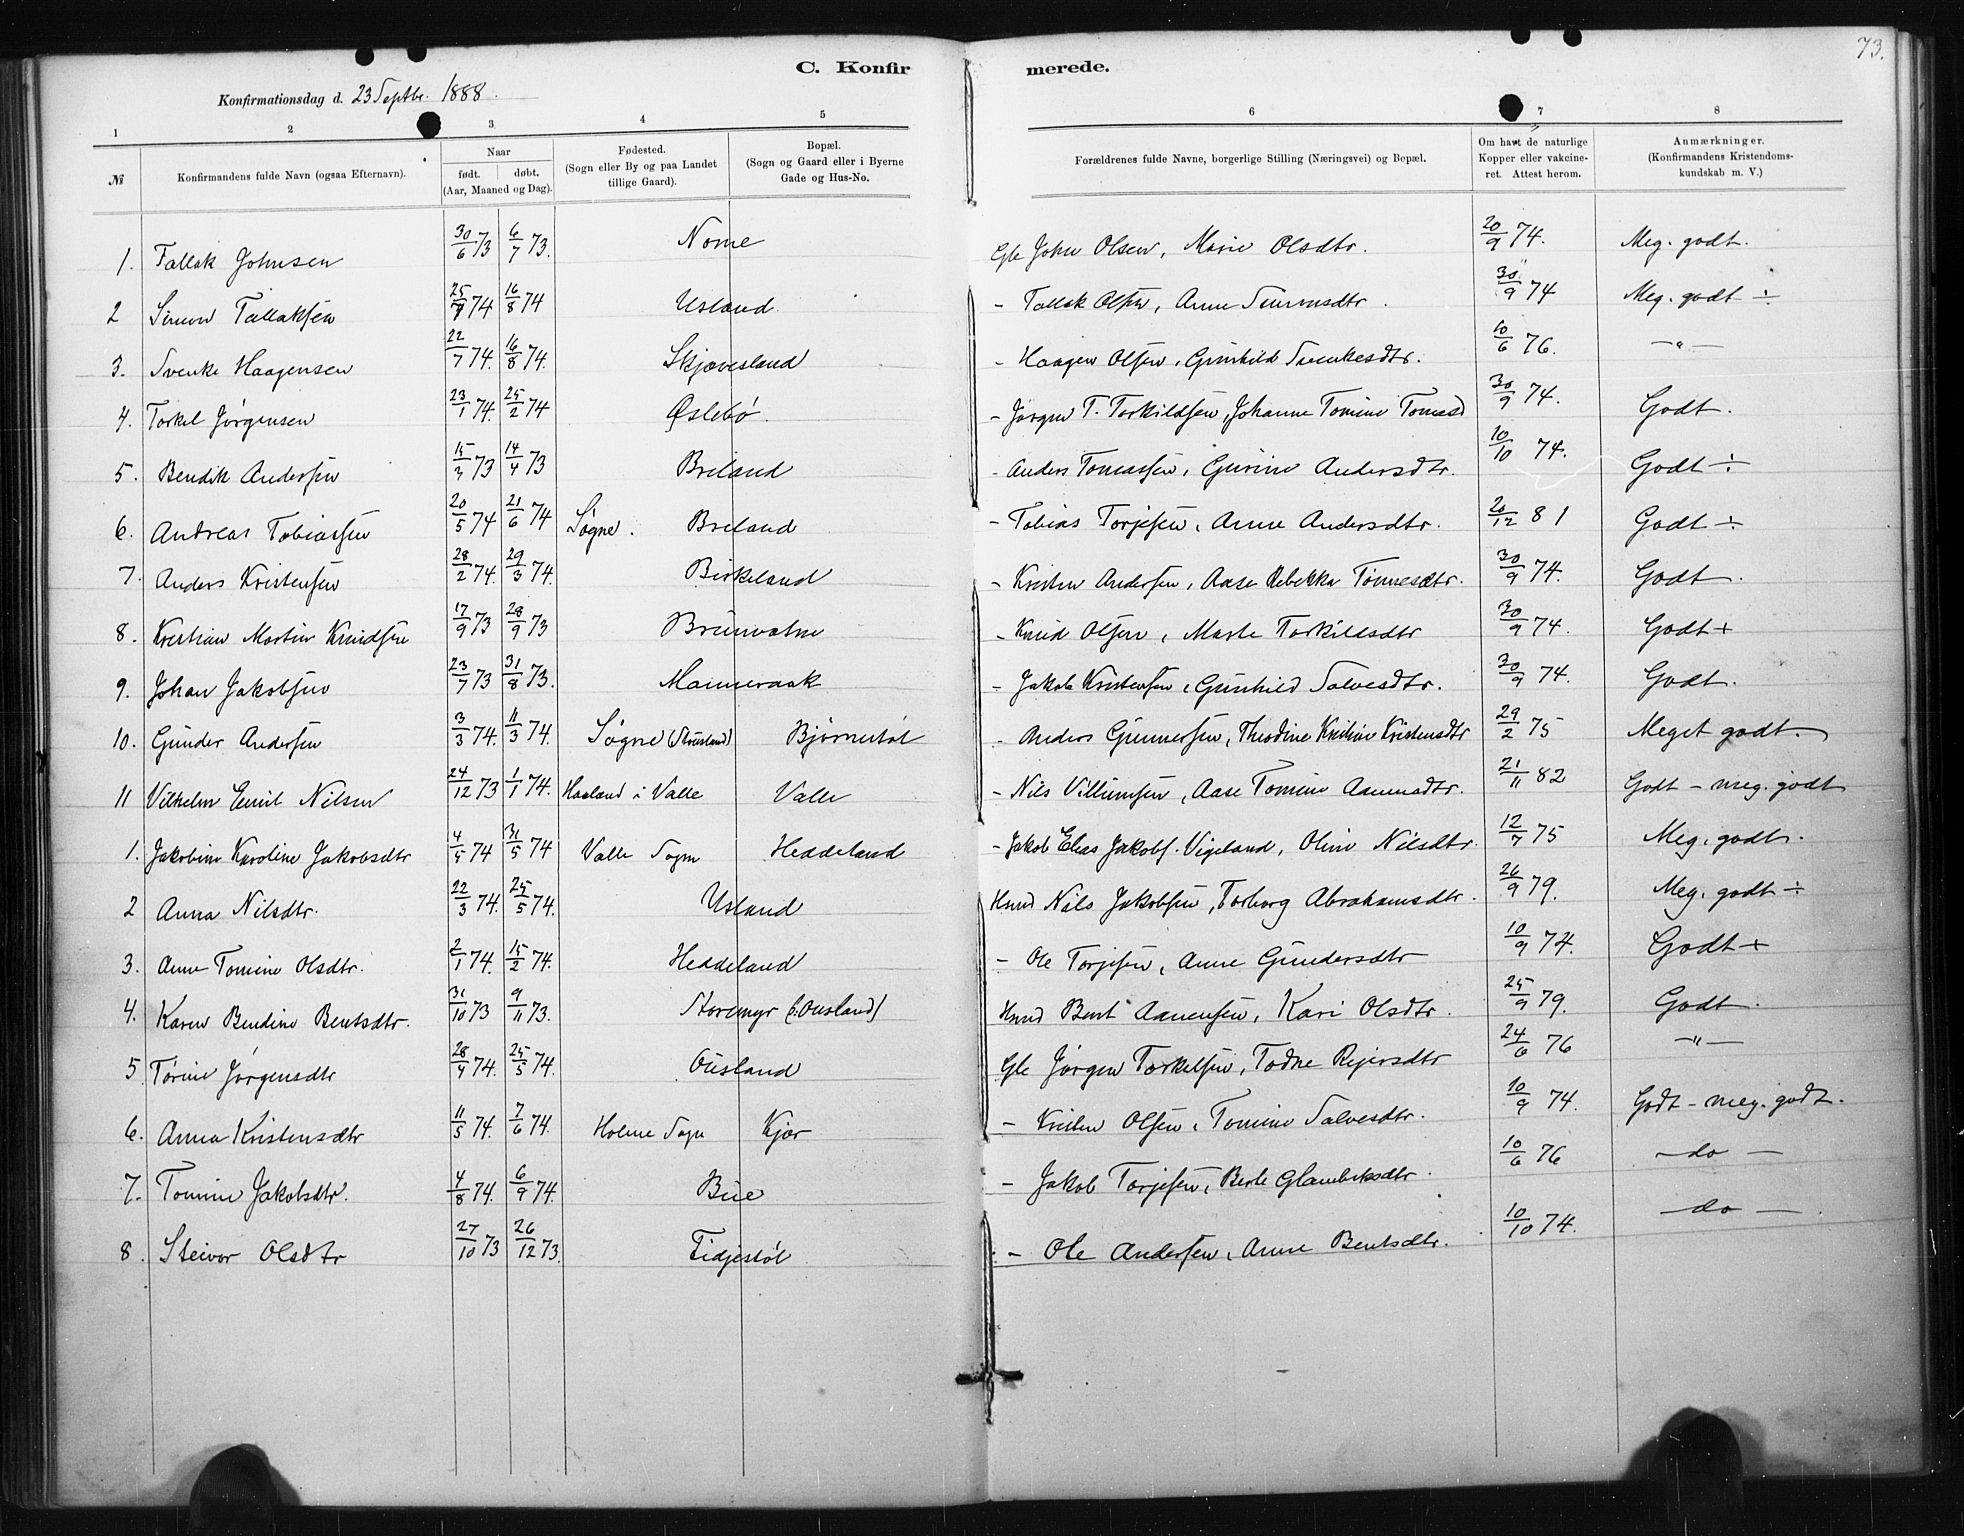 73.
C. Konfirmerede.
Konfirmationsdag d. 23 Septbr. 1888.
1 2 3 4 5 6 7 8
№ Konfirmandens fulde Navn (ogsaa Efternavn). Naar født. døbt. (Aar, Maaned og Dag). Fødested. (Sogn eller By og paa Landet tillige Gaard). Bopæl. (Sogn og Gaard eller i Byerne Gade og Hus-No. Forældrenes fulde Navne, borgerlige Stilling (Næringsvei) og Bopæl. Om havt de naturlige Kopper eller vakcineret. Attest herom. Anmærkninger. (Konfirmandens Kristendomskundskab m. V.)
1. Tallak Johnsen 30/6 73 6/7 73. Nome Gle John Olsen, Marie Olsdtr. 20/9 74. Meg. godt.
2 Simon Tallaksen 74 16/8 74 Usland. - Tallak Olsen, Anne Simonsdtr. 30/9 74 Meg. godt ÷
3. Svenke Haagensen 22/7 74. 16/8 74. Skjævesland - Haagen Olsen, Gunhild Svenkesdtr. 10/6 76. —"—
4. Torkel Jørgensen 23/1 74. 25/2 74 Øslebø. - Jørgen T. Torkildsen, Johanne Tomine Tomesd 30/9 74. Godt.
5. Bendik Andersen 15/3 73 14/4 73 Breland - Anders Tomassen, Gurine Andersdtr. 10/10 74. Godt ÷
6. Andreas Tobiassen 20/5 74 21/6 74 Søgne. Breland - Tobias Torjesen, Anne Andersdtr. 20/12 81 Godt ÷
7. Anders Kristensen 28/2 74. 29/3 74. Birkeland - Kristen Andersen, Aase Rebekka Tønnesdtr. 30/9 74. Godt.
8. Kristian Martin Knudsen 17/9 73 28/9 73 Brunvatne - Knud Olsen, Marte Torkildsdtr 30/9 74. Godt +
9. Johan Jakobsen 23/7 73 31/8 73. Manneraak - Jakob Kristensen, Gunhild Salvesdtr. 30/9 74. Godt.
10. Gunder Andersen 3/3 74. 11/3 74. Søgne Bjørnestøl - Anders Gunnersen, Theodine Kristine Kristensdtr 29/2 75 Meget godt.
11 Vilhelm Emil Nilsen 24/12 73 1/1 74. Haaland i Valle Valle - Nils Villumsen, Aase Tomine Aanensdtr. 21/11 82 Godt - meg. godt
1. Jakobine Karoline Jakobsdtr 4/5 74 31/5 74 Valle Sogn Heddeland - Jakob Elias Jakobs. Vigeland, Oline Nilsdtr. 12/7 75 Meg. godt.
2 Anna Nilsdtr. 22/3 74. 25/5 74. Usland Hmd Nils Jakobsen, Torborg Abrahamsdtr. 26/9 79. Meg. godt ÷
3. Anne Tomine Olsdtr. 2/1 74. 15/2 74. Heddeland - Ole Torjesen, Anne Gundersdtr 10/9 74. Godt +
4. Karen Bendine Bentsdtr. 31/10 73 9/11 73. Storemyr (Ousland) Hmd Bent Aanensen, Kari Olsdtr. 25/9 79. Godt.
5. Tørine Jørgensdtr 74. 25/5 74. Ousland Gle Jørgen Torkelsen, Todne Reiersdtr 24/6 76 —"—
6. Anna Kristensdtr 11/5 74. 7/6 74. Holme Sogn Kjær - Kristen Olsen, Tomine Salvesdtr. 10/9 74. Godt - meg. godt.
7. Tomine Jakobsdtr. 4/8 74. 6/9 74. Bue - Jakob Torjesen, Berte Glambeksdtr. 10/6 76 - do -
8. Steivor Olsdtr 27/10 73 26/12 73. Fidjestøl - Ole Andersen, Anne Bentsdtr. 10/10 74. - do -